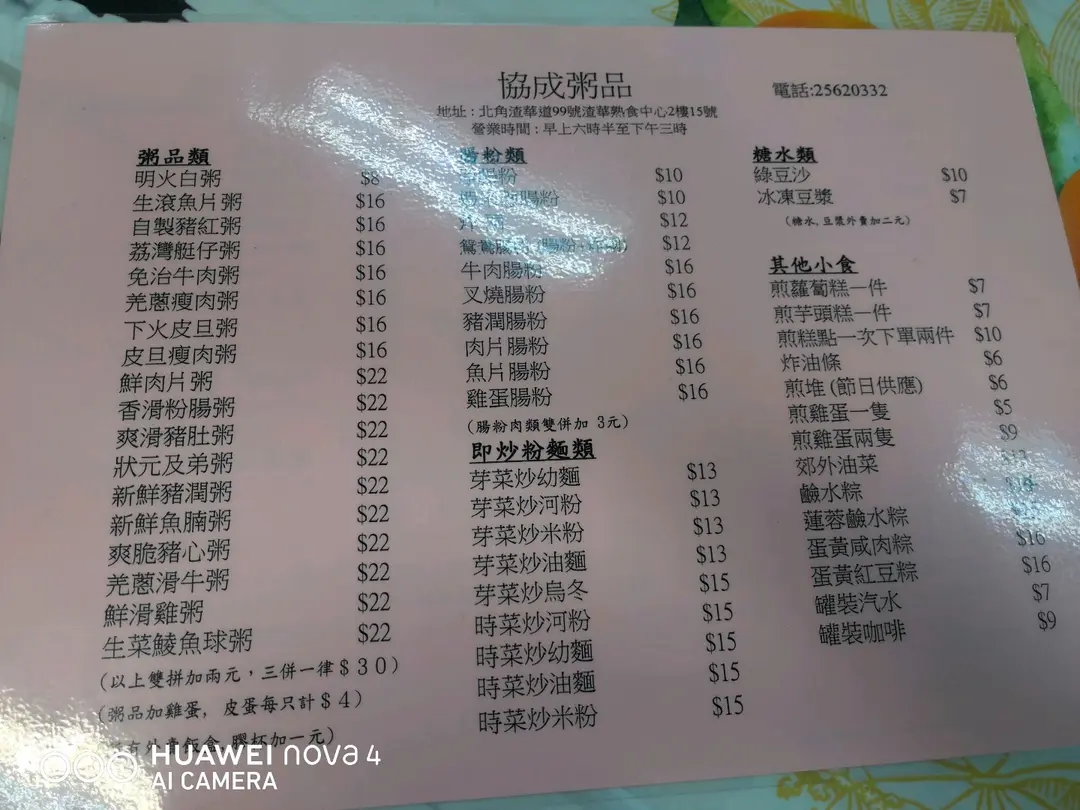 協成粥品
電話:25620332
地址:北角渣華道99號渣華熟食中心2樓15號
營業時間:早上六時半至下午三時
粥品類
明火白粥 $8
生滾魚片粥 $16
自製豬紅粥 $16
荔灣艇仔粥 $16
免治牛肉粥 $16
羌蔥瘦肉粥 $16
下火皮旦粥 $16
皮旦瘦肉粥 $16
鮮肉片粥 $22
香滑粉腸粥 $22
爽滑豬肚粥 $22
狀元及弟粥 $22
新鮮豬潤粥 $22
新鮮魚腩粥 $22
爽脆豬心粥 $22
羌蔥滑牛粥 $22
鮮滑雞粥 $22
生菜鯪魚球粥 $22
(以上雙拼加兩元,三併一律$30)
(粥品加雞蛋, 皮蛋每只計$4)
外賣飯盒,膠杯加一元)
腸粉類
腸粉 $10
腸粉 $10
$12
鴛鴦腸粉 $12
牛肉腸粉 $16
叉燒腸粉 $16
豬潤腸粉 $16
肉片腸粉 $16
魚片腸粉 $16
雞蛋腸粉 $16
(腸粉肉類雙併加 3元)
即炒粉麵類
芽菜炒幼麵 $13
芽菜炒河粉 $13
芽菜炒米粉 $13
芽菜炒油麵 $13
芽菜炒烏冬 $15
時菜炒河粉 $15
時菜炒幼麵 $15
時菜炒油麵 $15
時菜炒米粉 $15
糖水類
綠豆沙 $10
冰凍豆漿 $7
(糖水,豆漿外賣加二元)
其他小食
煎蘿蔔糕一件 $7
煎芋頭糕一件 $7
煎糕點一次下單兩件 $10
炸油條 $6
煎堆(節日供應) $6
煎雞蛋一隻 $5
煎雞蛋兩隻 $9
郊外油菜
鹼水粽
蓮蓉鹼水粽
蛋黃咸肉粽 $16
蛋黃紅豆粽 $16
罐裝汽水 $7
罐裝咖啡 $9
HUAWEI nova 4
AI CAMERA